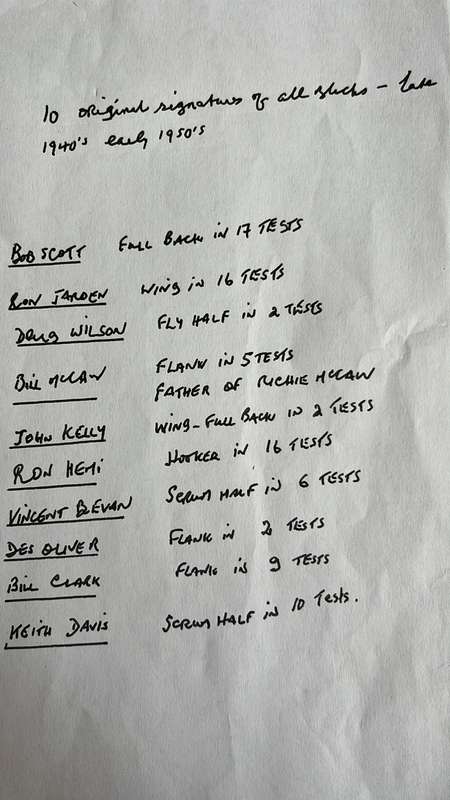 10 original signatures of all Blacks - late
1940's early 1950's
BOB SCOTT FULL BACK IN 17 TESTS
RON JARDEN WING IN 16 TESTS
DOUG WILSON FLY HALF IN 2 TESTS
BILL McCAW FLANK IN 5 TESTS
FATHER OF RICHIE McCAW
JOHN KELLY WING-FULL BACK IN 2 TESTS
RON HEMI HOOKER IN 16 TESTS
VINCENT BEVAN SCRUM HALF IN 6 TESTS
DES OLIVER FLANK IN 2 TESTS
BILL CLARK FLANK IN 9 TESTS
KEITH DAVIS SCRUM HALF IN 10 Tests.